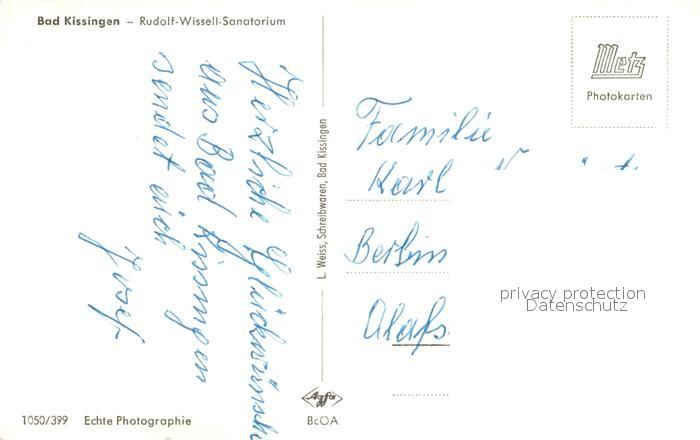 Bad Kissingen – Rudolf-Wissell-Sanatorium
Herzliche Glückwünsch
aus Bad Kissingen
sendet euch
Josef
L. Weiss, Schreibwaren, Bad Kissingen
Metz
Photokarten
Familie
Karl
Berlin
privacy protection
Datenschutz
1050/399 Echte Photographie
Agfa
BcOA